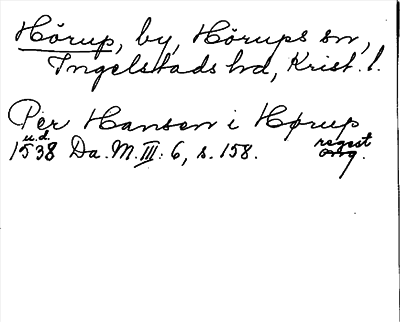 Hörup, by, Hörups sn,
Ingelstads hd, Krist. l.
Per Hansen i Hørup
u.d.
1538 Da. M. III: 6, s. 158. regest
orig.